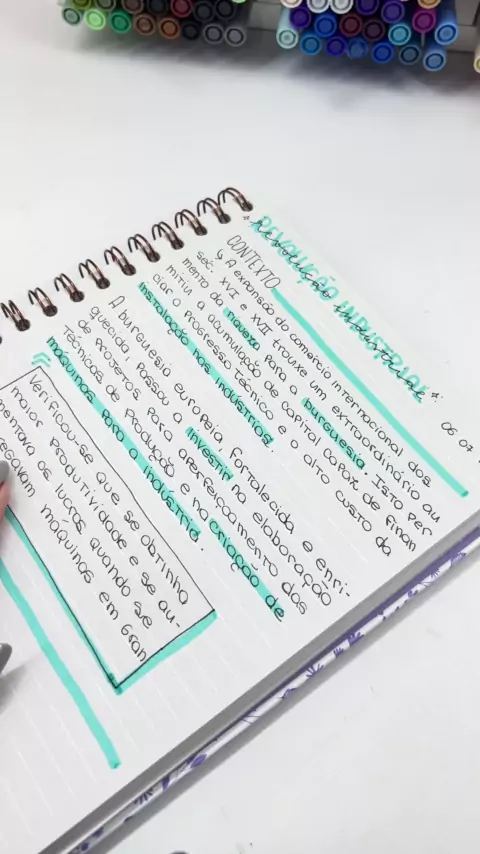 "REVOLUÇÃO INDUSTRIAL"
revolução industrial
06 07
CONTEXTO
↳ A expansão do comércio internacional dos
séc. XVI e XVII trouxe um extraordinário au
mento da riqueza para a burguesia. Isto per
mitiu a acumulação de capital capaz de finan
ciar o progresso técnico e o alto custo da
instalação nas indústrias.
A burguesia européia fortalecida e enri-
quecida, passou a investir na elaboração
de projetos para aperfeiçoamento das
técnicas de produção e na criação de
máquinas para a indústria.
Verificou-se que se obtinha
maior produtividade e se au-
mentava os lucros quando se
máquinas em Gran